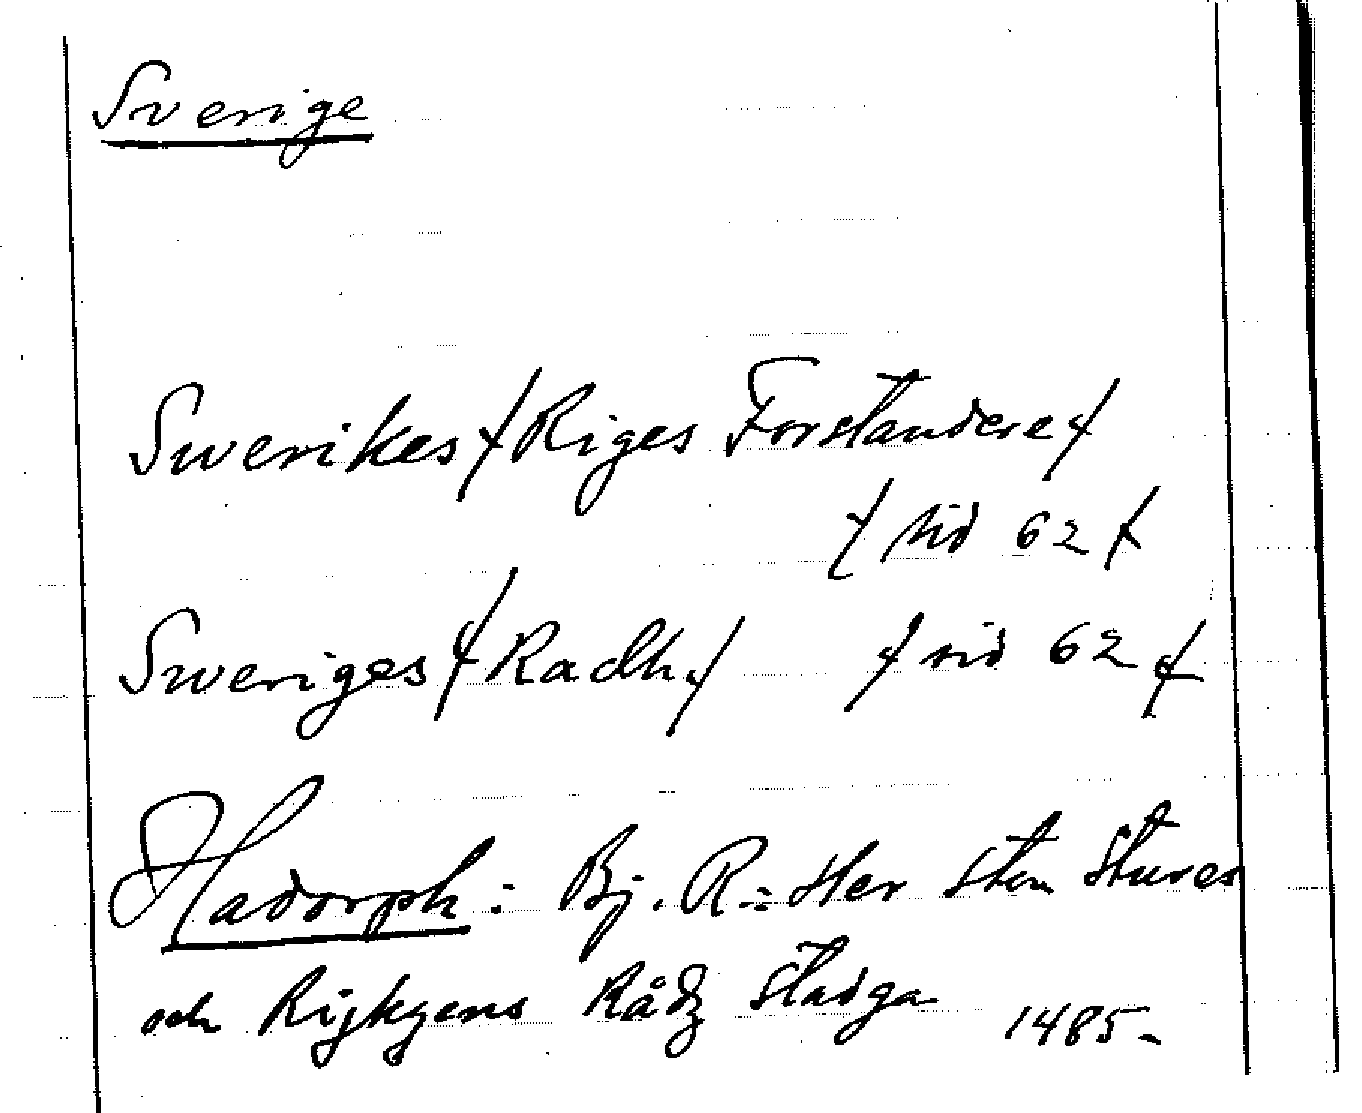 Sverige
Swerikes / Riges Forstandere /
/ sid 62 /
Sweriges / Radh / / sid 62 /
Hadorph: Bj. R: Her Sten Stures
och Rijkzens Rådz Stadga 1485-